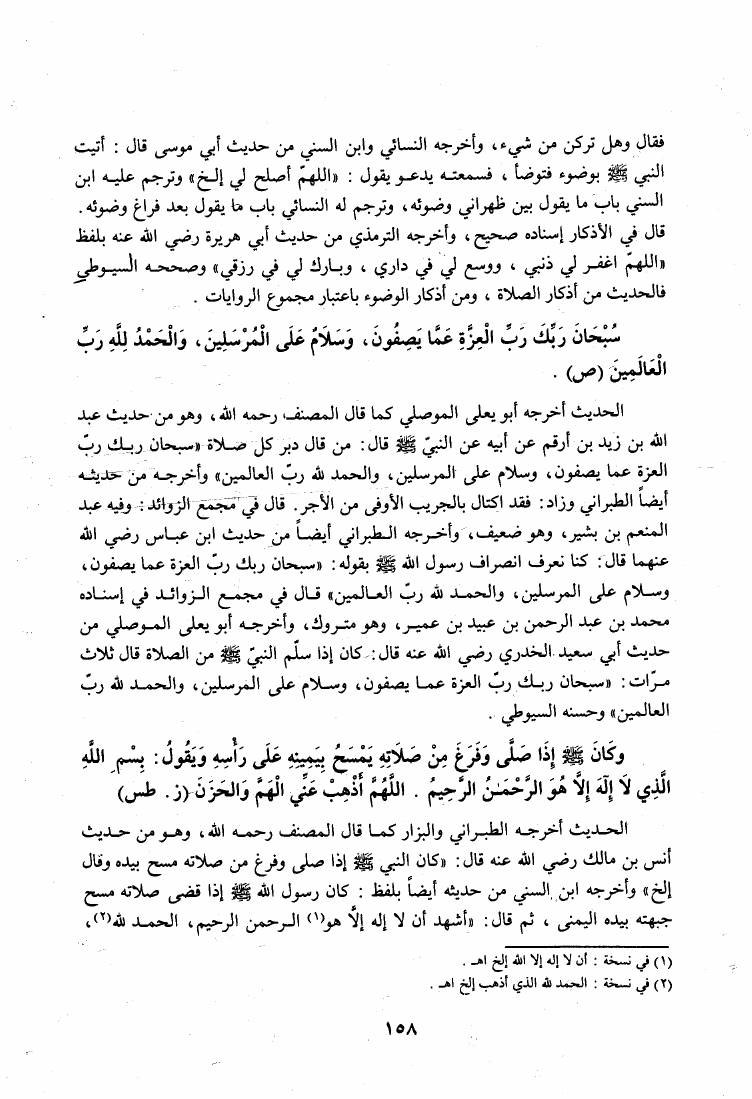 فقال وهل تركن من شيء، وأخرجه النسائي وابن السني من حديث أبي موسى قال : أتيت
النبي ﷺ بوضوء فتوضأ ، فسمعته يدعو يقول : «اللهمّ أصلح لي إلخ» وترجم عليه ابن
السني باب ما يقول بين ظهراني وضوئه، وترجم له النسائي باب ما يقول بعد فراغ وضوئه.
قال في الأذكار إسناده صحيح، وأخرجه الترمذي من حديث أبي هريرة رضي الله عنه بلفظ
«اللهمّ اغفر لي ذنبي ، ووسع لي في داري ، وبارك لي في رزقي» وصححه السيوطي
فالحديث من أذكار الصلاة ، ومن أذكار الوضوء باعتبار مجموع الروايات .
سُبْحَانَ رَبِّكَ رَبِّ الْعِزَّةِ عَمَّا يَصِفُونَ، وَسَلَامٌ عَلَى الْمُرْسَلِينَ، وَالْحَمْدُ لِلَّهِ رَبِّ
الْعَالَمِينَ (ص) .
الحديث أخرجه أبو يعلى الموصلي كما قال المصنف رحمه الله، وهو من حديث عبد
الله بن زيد بن أرقم عن أبيه عن النبيّ ﷺ قال: من قال دبر كل صلاة «سبحان ربك ربّ
العزة عما يصفون، وسلام على المرسلين، والحمد لله ربّ العالمين» وأخرجه من حديثه
أيضاً الطبراني وزاد: فقد اكتال بالجريب الأوفى من الأجر. قال في مجمع الزوائد: وفيه عبد
المنعم بن بشير، وهو ضعيف، وأخرجه الطبراني أيضاً من حديث ابن عباس رضي الله
عنهما قال: كنا نعرف انصراف رسول الله ﷺ بقوله: «سبحان ربك ربّ العزة عما يصفون،
وسلام على المرسلين، والحمد لله ربّ العالمين» قال في مجمع الزوائد في إسناده
محمد بن عبد الرحمن بن عبيد بن عمير، وهو متروك، وأخرجه أبو يعلى الموصلي من
حديث أبي سعيد الخدري رضي الله عنه قال: كان إذا سلّم النبيّ ﷺ من الصلاة قال ثلاث
مرّات: «سبحان ربك ربّ العزة عما يصفون، وسلام على المرسلين، والحمد لله ربّ
العالمين» وحسنه السيوطي .
وَكَانَ ﷺ إِذَا صَلَّى وَفَرَغَ مِنْ صَلَاتِهِ يَمْسَحُ بِيَمِينِهِ عَلَى رَأْسِهِ وَيَقُولُ: بِسْمِ اللَّهِ
الَّذِي لَا إِلَهَ إِلَّا هُوَ الرَّحْمَنُ الرَّحِيمُ . اللَّهُمَّ أَذْهِبْ عَنِّي الْهَمَّ وَالْحَزَنَ (ز. طس)
الحديث أخرجه الطبراني والبزار كما قال المصنف رحمه الله، وهو من حديث
أنس بن مالك رضي الله عنه قال: «كان النبي ﷺ إذا صلى وفرغ من صلاته مسح بيده وقال
إلخ» وأخرجه ابن السني من حديثه أيضاً بلفظ : كان رسول الله ﷺ إذا قضى صلاته مسح
جبهته بيده اليمنى ، ثم قال: «أشهد أن لا إله إلّا هو(١) الرحمن الرحيم، الحمد لله(٢)،
(١) في نسخة : أن لا إله إلا الله إلخ اهـ .
(٢) في نسخة : الحمد لله الذي أذهب إلخ اهـ .
١٥٨